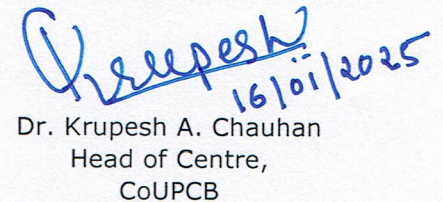 Krupesh
16/01/2025
Dr. Krupesh A. Chauhan
Head of Centre,
CoUPCB